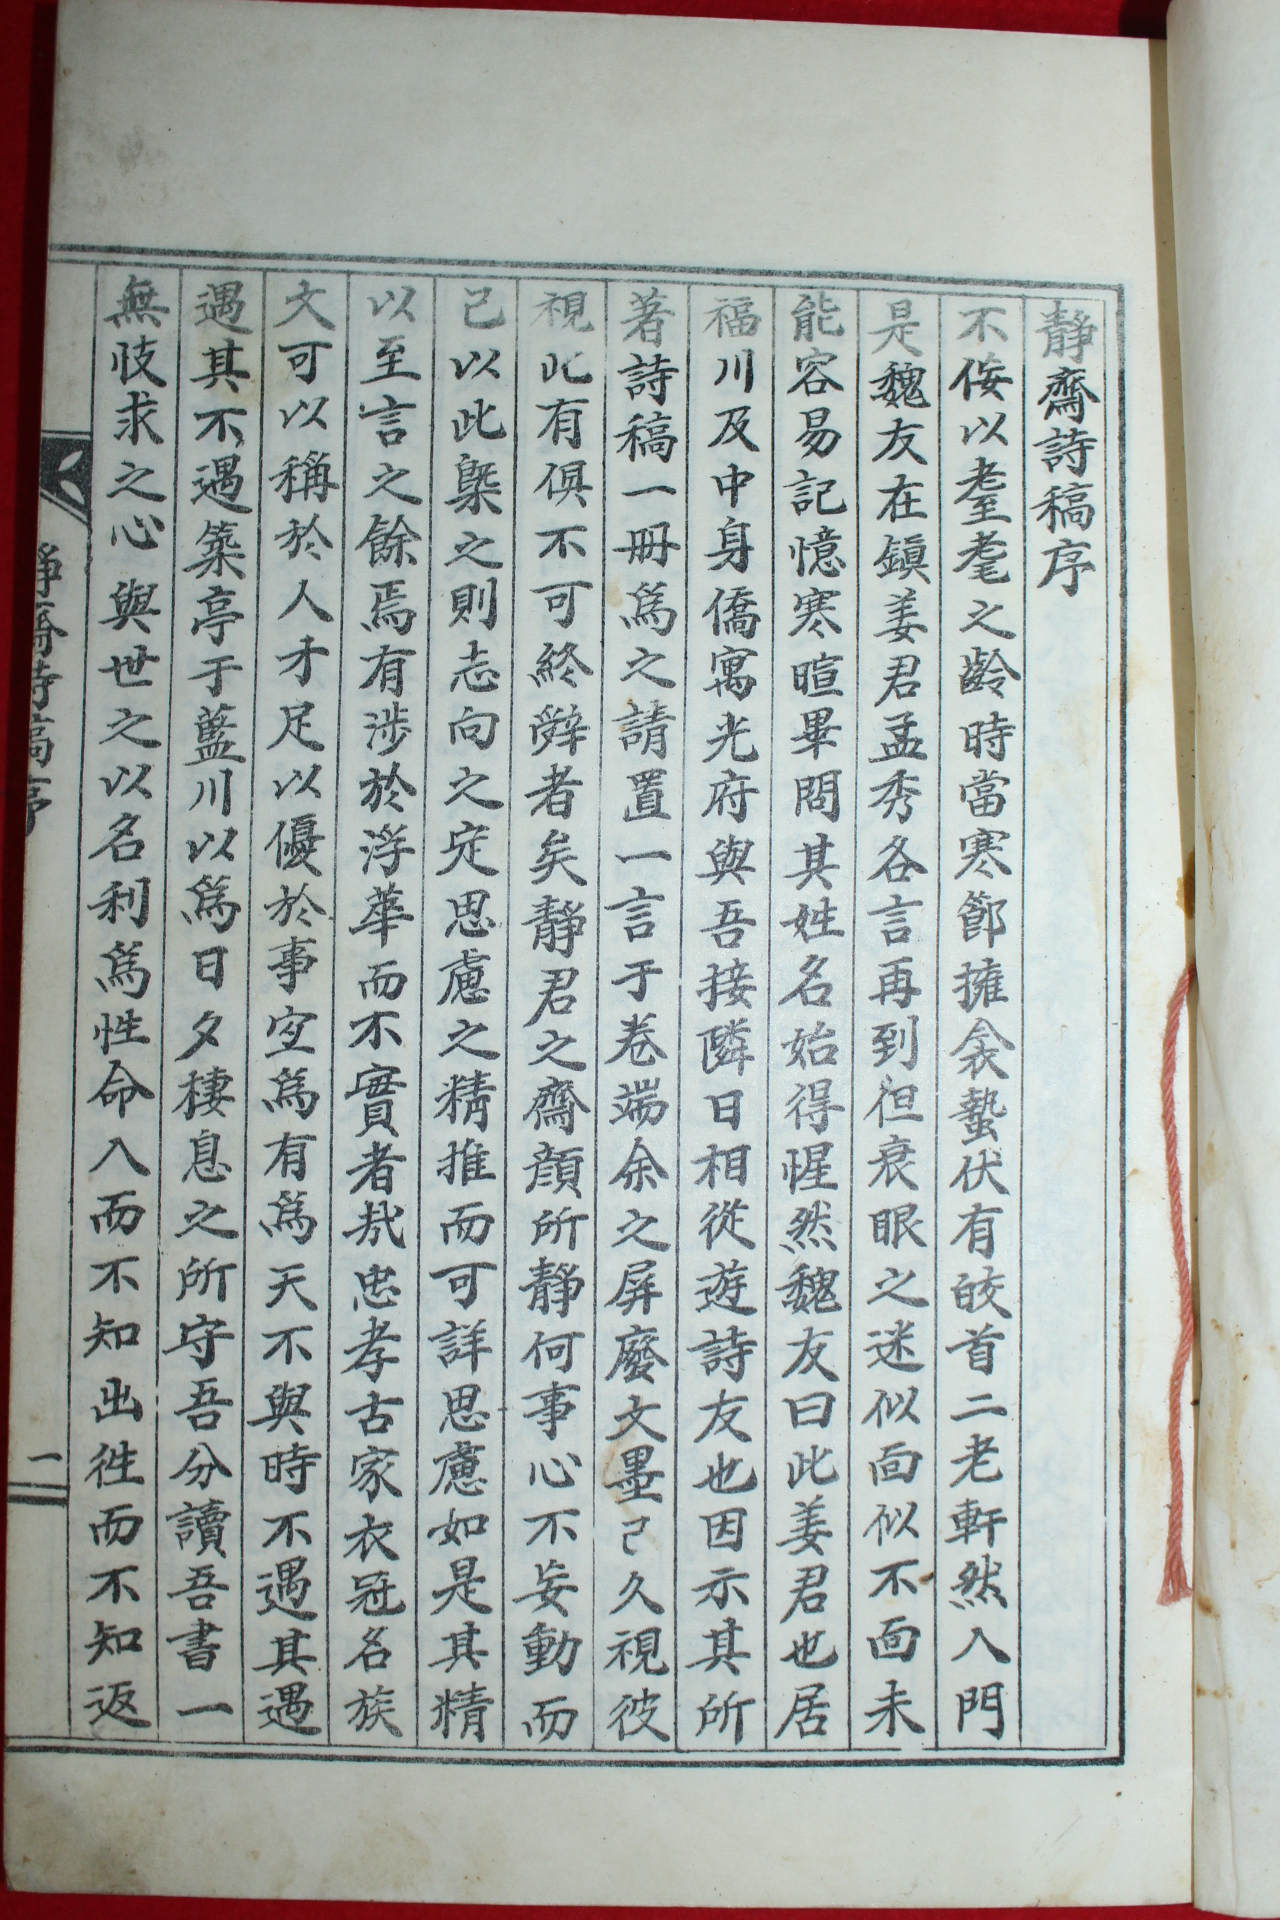 靜齋詩稿序
不侫以耋耄之齡時當寒節擁衾蟄伏有皎首二老軒然入門
是魏友在鎭姜君孟秀各言再到但衰眼之迷似面似不面未
能容易記憶寒暄畢問其姓名始得惺然魏友曰此姜君也居
福川及中身僑寓光府與吾接隣日相從遊詩友也因示其所
著詩稿一冊爲之請置一言于卷端余之屛廢文墨已久視彼
視此有俱不可終辭者矣靜君之齋顔所靜何事心不妄動而
已以此槩之則志向之定思慮之精推而可詳思慮如是其精
以至言之餘焉有涉於浮華而不實者㢤忠孝古家衣冠名族
文可以稱於人才足以優於事宜爲有爲天不與時不遇其遇
遇其不遇築亭于藍川以爲日夕棲息之所守吾分讀吾書一
無忮求之心與世之以名利爲性命入而不知出徃而不知返
靜齋詩稿序
一